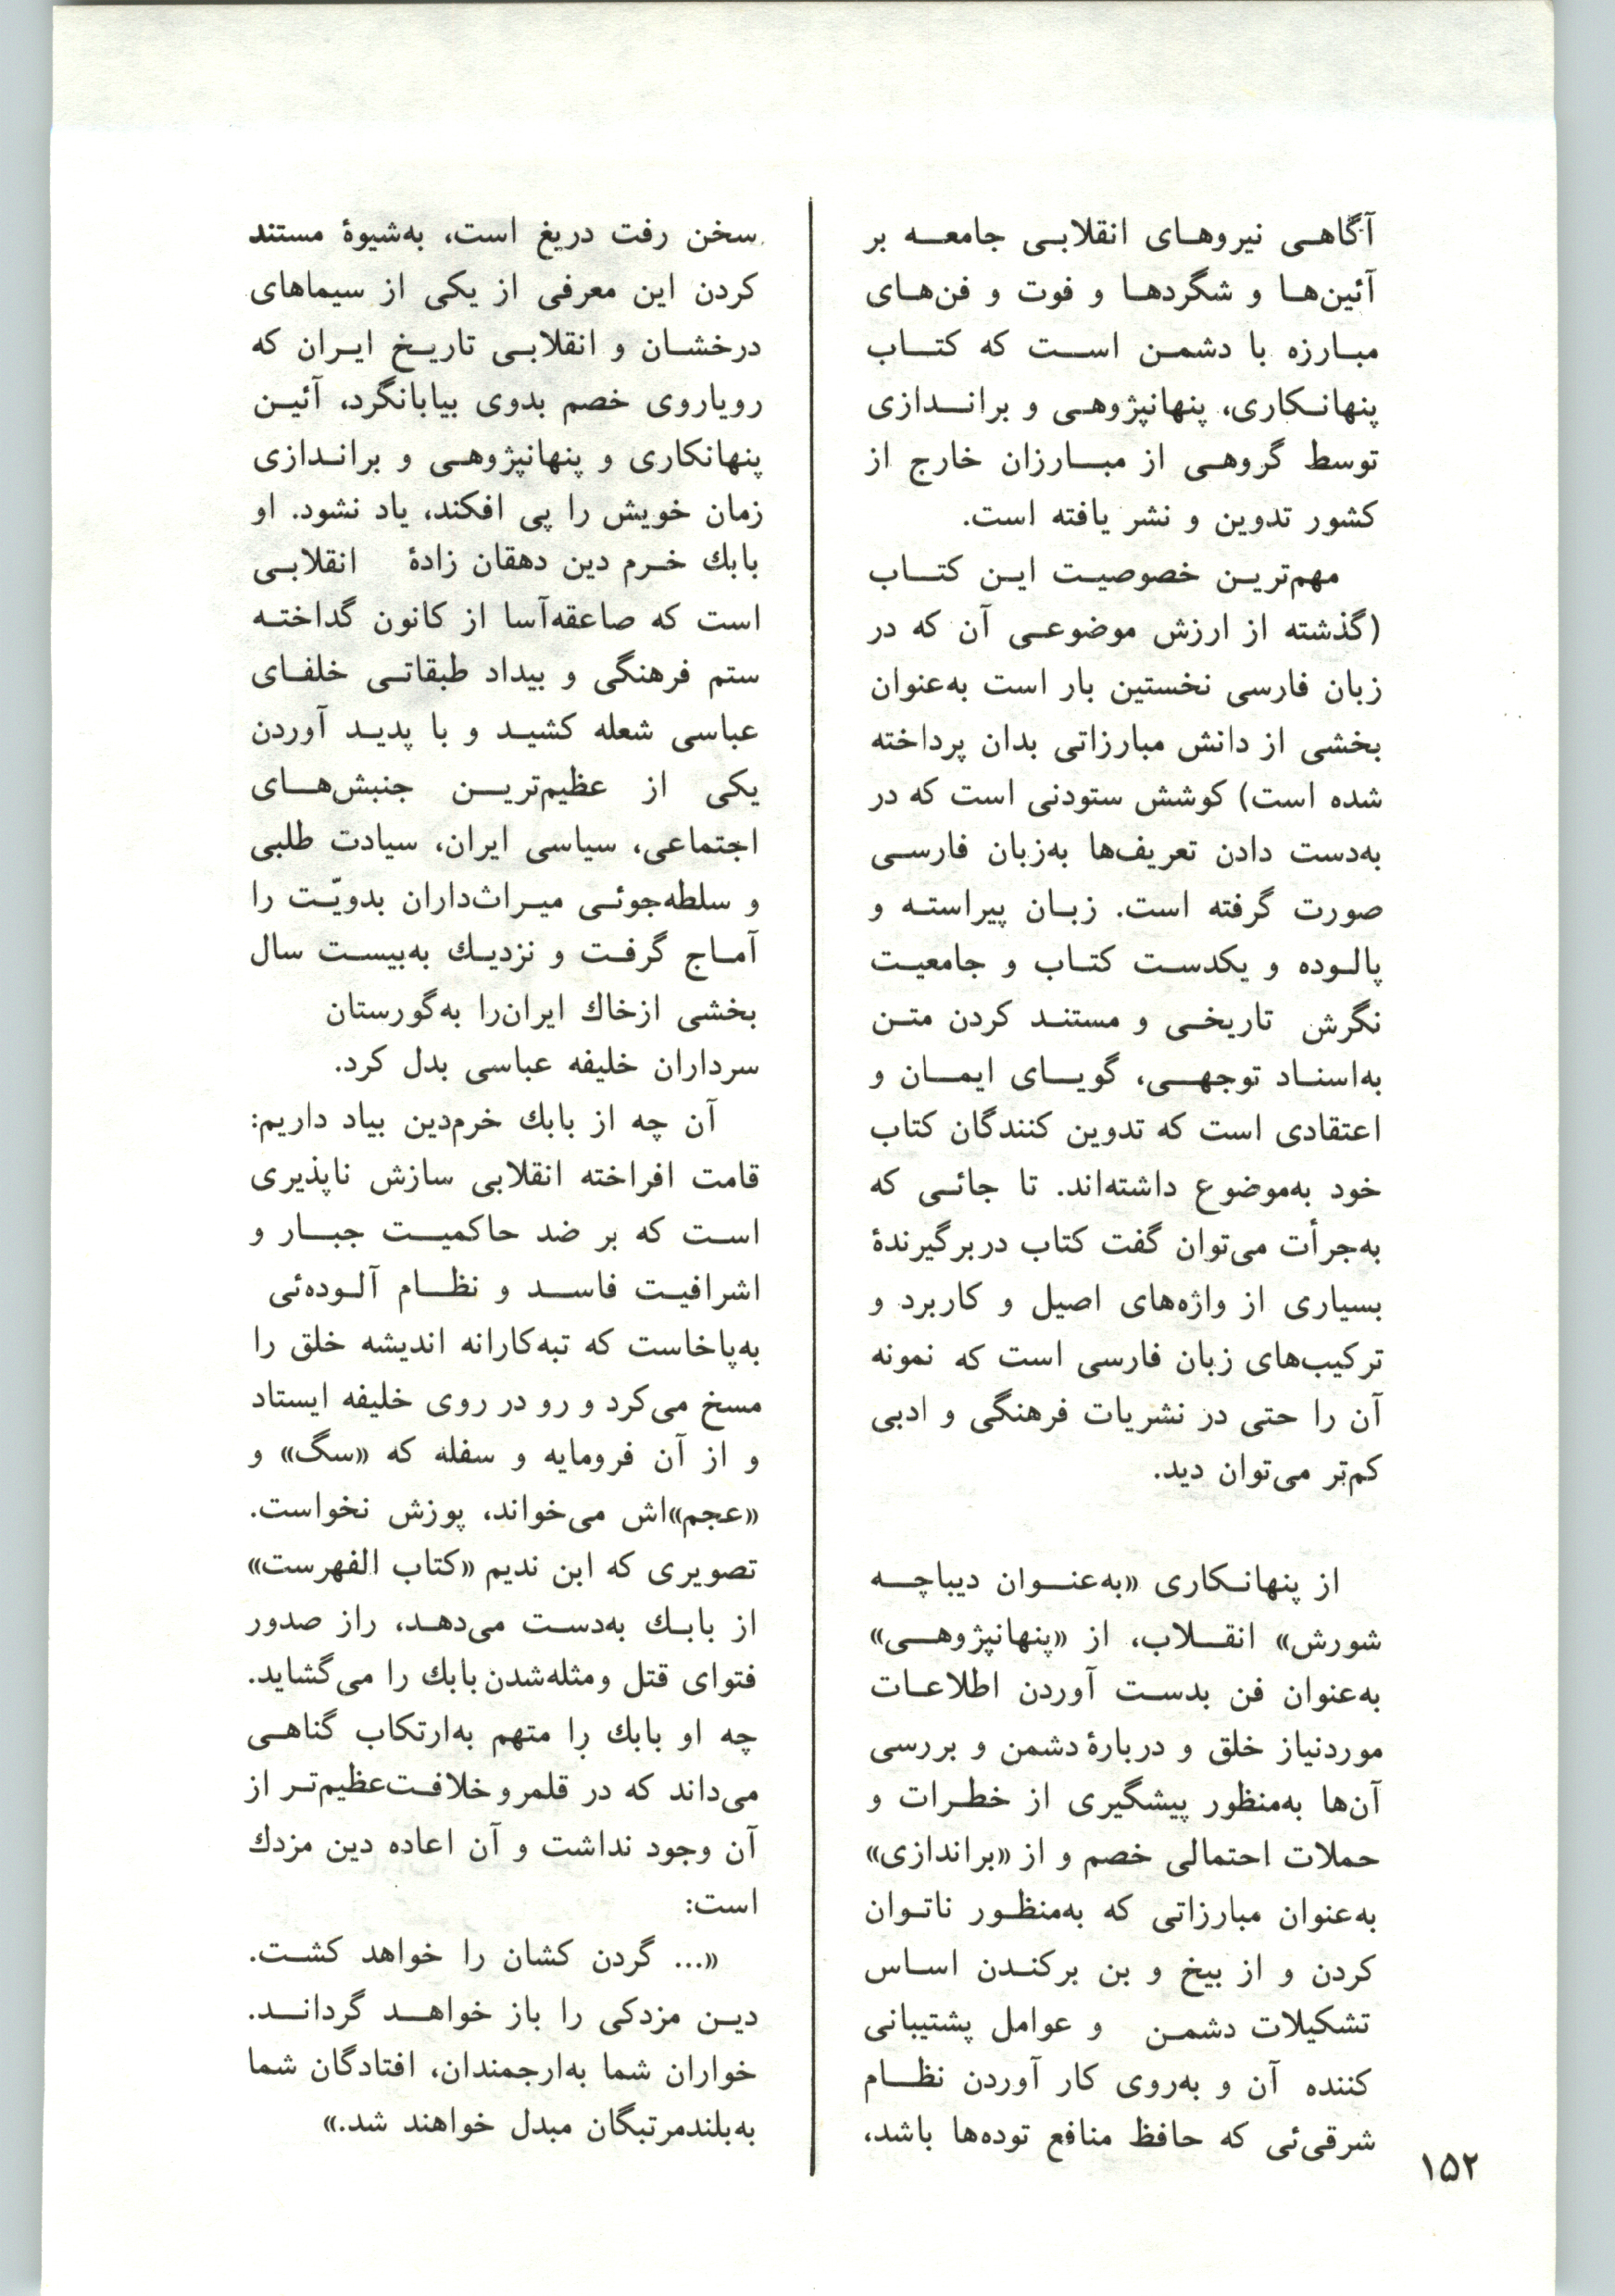 آگاهی نیروهای انقلابی جامعه بر
آئین‌ها و شگردها و فوت و فن‌های
مبارزه با دشمن است که کتاب
پنهانکاری، پنهانپژوهی و براندازی
توسط گروهی از مبارزان خارج از
کشور تدوین و نشر یافته است.
مهم‌ترین خصوصیت این کتاب
(گذشته از ارزش موضوعی آن که در
زبان فارسی نخستین بار است به‌عنوان
بخشی از دانش مبارزاتی بدان پرداخته
شده است) کوشش ستودنی است که در
به‌دست دادن تعریف‌ها به‌زبان فارسی
صورت گرفته است. زبان پیراسته و
پالوده و یکدست کتاب و جامعیت
نگرش تاریخی و مستند کردن متن
به‌اسناد توجهی، گویای ایمان و
اعتقادی است که تدوین کنندگان کتاب
خود به‌موضوع داشته‌اند. تا جائی که
به‌جرأت می‌توان گفت کتاب دربرگیرندهٔ
بسیاری از واژه‌های اصیل و کاربرد و
ترکیب‌های زبان فارسی است که نمونه
آن را حتی در نشریات فرهنگی و ادبی
کم‌تر می‌توان دید.
از پنهانکاری «به‌عنوان دیباچه
شورش» انقلاب، از «پنهانپژوهی»
به‌عنوان فن بدست آوردن اطلاعات
موردنیاز خلق و دربارهٔ دشمن و بررسی
آن‌ها به‌منظور پیشگیری از خطرات و
حملات احتمالی خصم و از «براندازی»
به‌عنوان مبارزاتی که به‌منظور ناتوان
کردن و از بیخ و بن برکندن اساس
تشکیلات دشمن و عوامل پشتیبانی
کننده آن و به‌روی کار آوردن نظام
شرقی‌ئی که حافظ منافع توده‌ها باشد،
سخن رفت دریغ است، به‌شیوهٔ مستند
کردن این معرفی از یکی از سیماهای
درخشان و انقلابی تاریخ ایران که
رویاروی خصم بدوی بیابانگرد، آئین
پنهانکاری و پنهانپژوهی و براندازی
زمان خویش را پی افکند، یاد نشود. او
بابك خرم دین دهقان زادهٔ انقلابی
است که صاعقه‌آسا از کانون گداخته
ستم فرهنگی و بیداد طبقاتی خلفای
عباسی شعله کشید و با پدید آوردن
یکی از عظیم‌ترین جنبش‌های
اجتماعی، سیاسی ایران، سیادت طلبی
و سلطه‌جوئی میراث‌داران بدویّت را
آماج گرفت و نزدیك به‌بیست سال
بخشی ازخاك ایران‌را به‌گورستان
سرداران خلیفه عباسی بدل کرد.
آن چه از بابك خرم‌دین بیاد داریم:
قامت افراخته انقلابی سازش ناپذیری
است که بر ضد حاکمیت جبار و
اشرافیت فاسد و نظام آلوده‌ئی
به‌پاخاست که تبه‌کارانه اندیشه خلق را
مسخ می‌کرد و رو در روی خلیفه ایستاد
و از آن فرومایه و سفله که «سگ» و
«عجم»اش می‌خواند، پوزش نخواست.
تصویری که ابن ندیم «کتاب الفهرست»
از بابك به‌دست می‌دهد، راز صدور
فتوای قتل ومثله‌شدن بابك را می‌گشاید.
چه او بابك را متهم به‌ارتکاب گناهی
می‌داند که در قلمرو خلافت‌عظیم‌تر از
آن وجود نداشت و آن اعاده دین مزدك
است:
«... گردن کشان را خواهد کشت.
دین مزدکی را باز خواهد گرداند.
خواران شما به‌ارجمندان، افتادگان شما
به‌بلندمرتبگان مبدل خواهند شد.»
۱۵۲